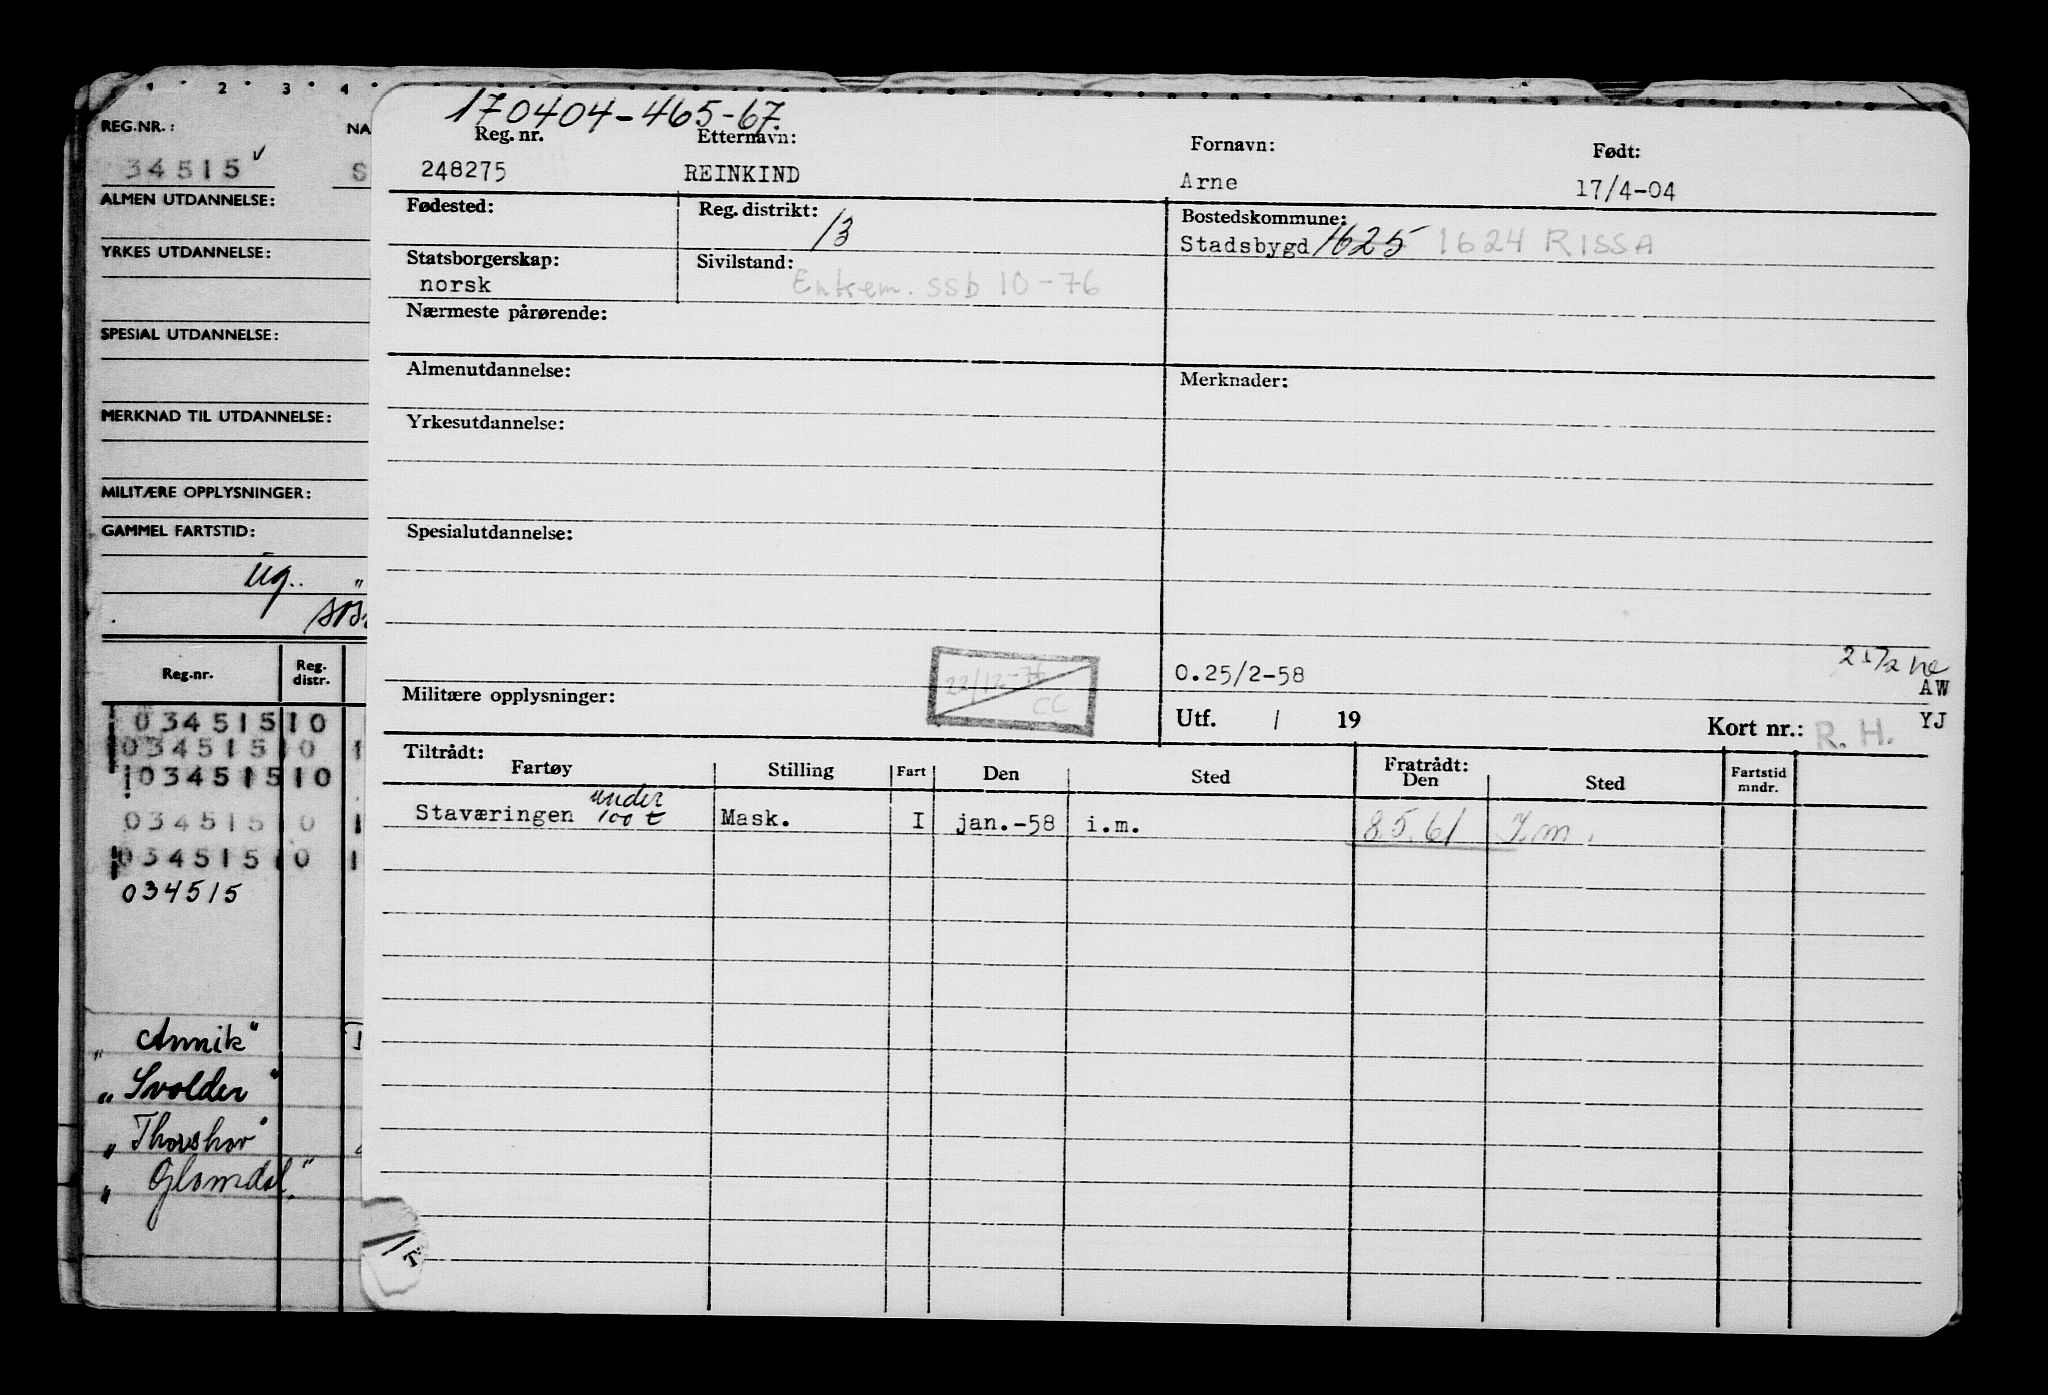 1 2 3 4
REG.NR.: NA
34515 ✓ S
ALMEN UTDANNELSE:
YRKES UTDANNELSE:
SPESIAL UTDANNELSE:
MERKNAD TIL UTDANNELSE:
MILITÆRE OPPLYSNINGER:
GAMMEL FARTSTID:
Reg.nr. Reg. distr.
034515 10
034515 10 1
034515 10
034515 10 1
034515 10 1
034515
„Annik"
„Svolder"
„Thorshov"
„Glomdal."
170404-465-67.
Reg. nr. Etternavn: Fornavn: Født:
248275 REINKIND Arne 17/4-04
Fødested: Reg. distrikt: 13 Bostedskommune:
Stadsbygd 1625 1624 RISSA
Statsborgerskap: Sivilstand:
norsk Entrem. ssb 10-76
Nærmeste pårørende:
Almenutdannelse: Merknader:
Yrkesutdannelse:
Spesialutdannelse:
22/12-76
CC
0.25/2-58
AW
Militære opplysninger:
Utf. / 19 Kort nr.: R. H. YJ
Tiltrådt: Fratrådt:
Fartøy Stilling Fart Den Sted Den Sted Fartstid mndr.
Staværingen under 100 t Mask. I jan.-58 i.m. 8.5.61 I.m.